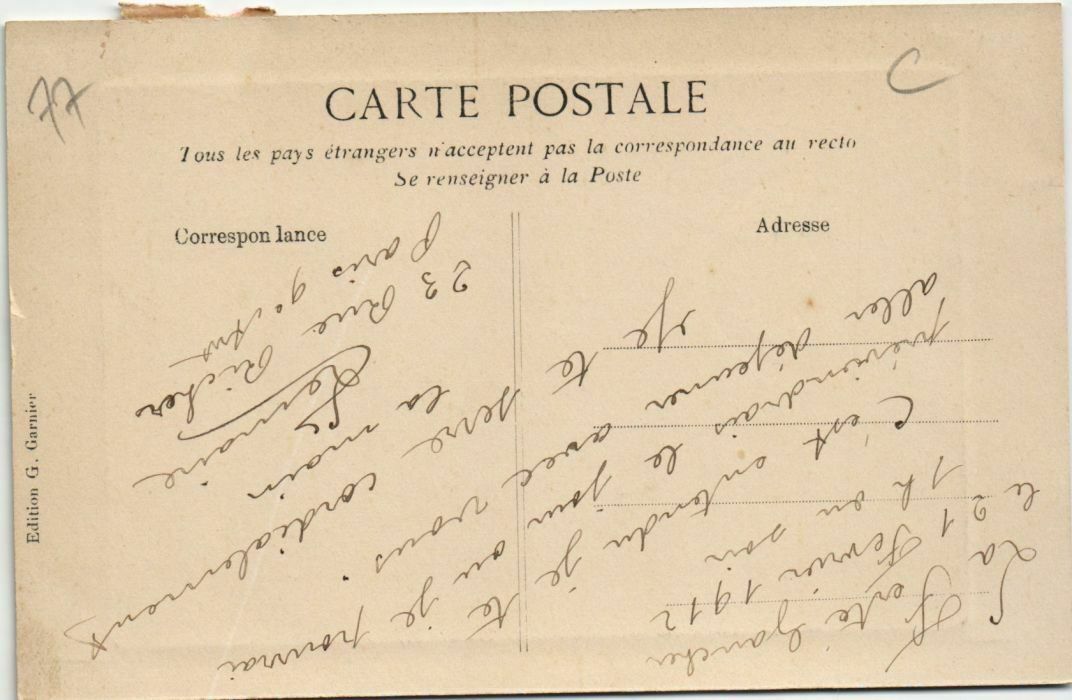 77
C
CARTE POSTALE
Tous les pays étrangers n'acceptent pas la correspondance au recto
Se renseigner à la Poste
Correspon lance
Adresse
Edition G. Garnier
La Ferté Gaucher
le 21 Fevrier 1912
1h du soir
C'est entendu je te
préviendrais le jour ou je pourrai
aller déjeuner avec vous.
Je te serre la main cordialement
Lemaire
23 Rue Richer
Paris 9e